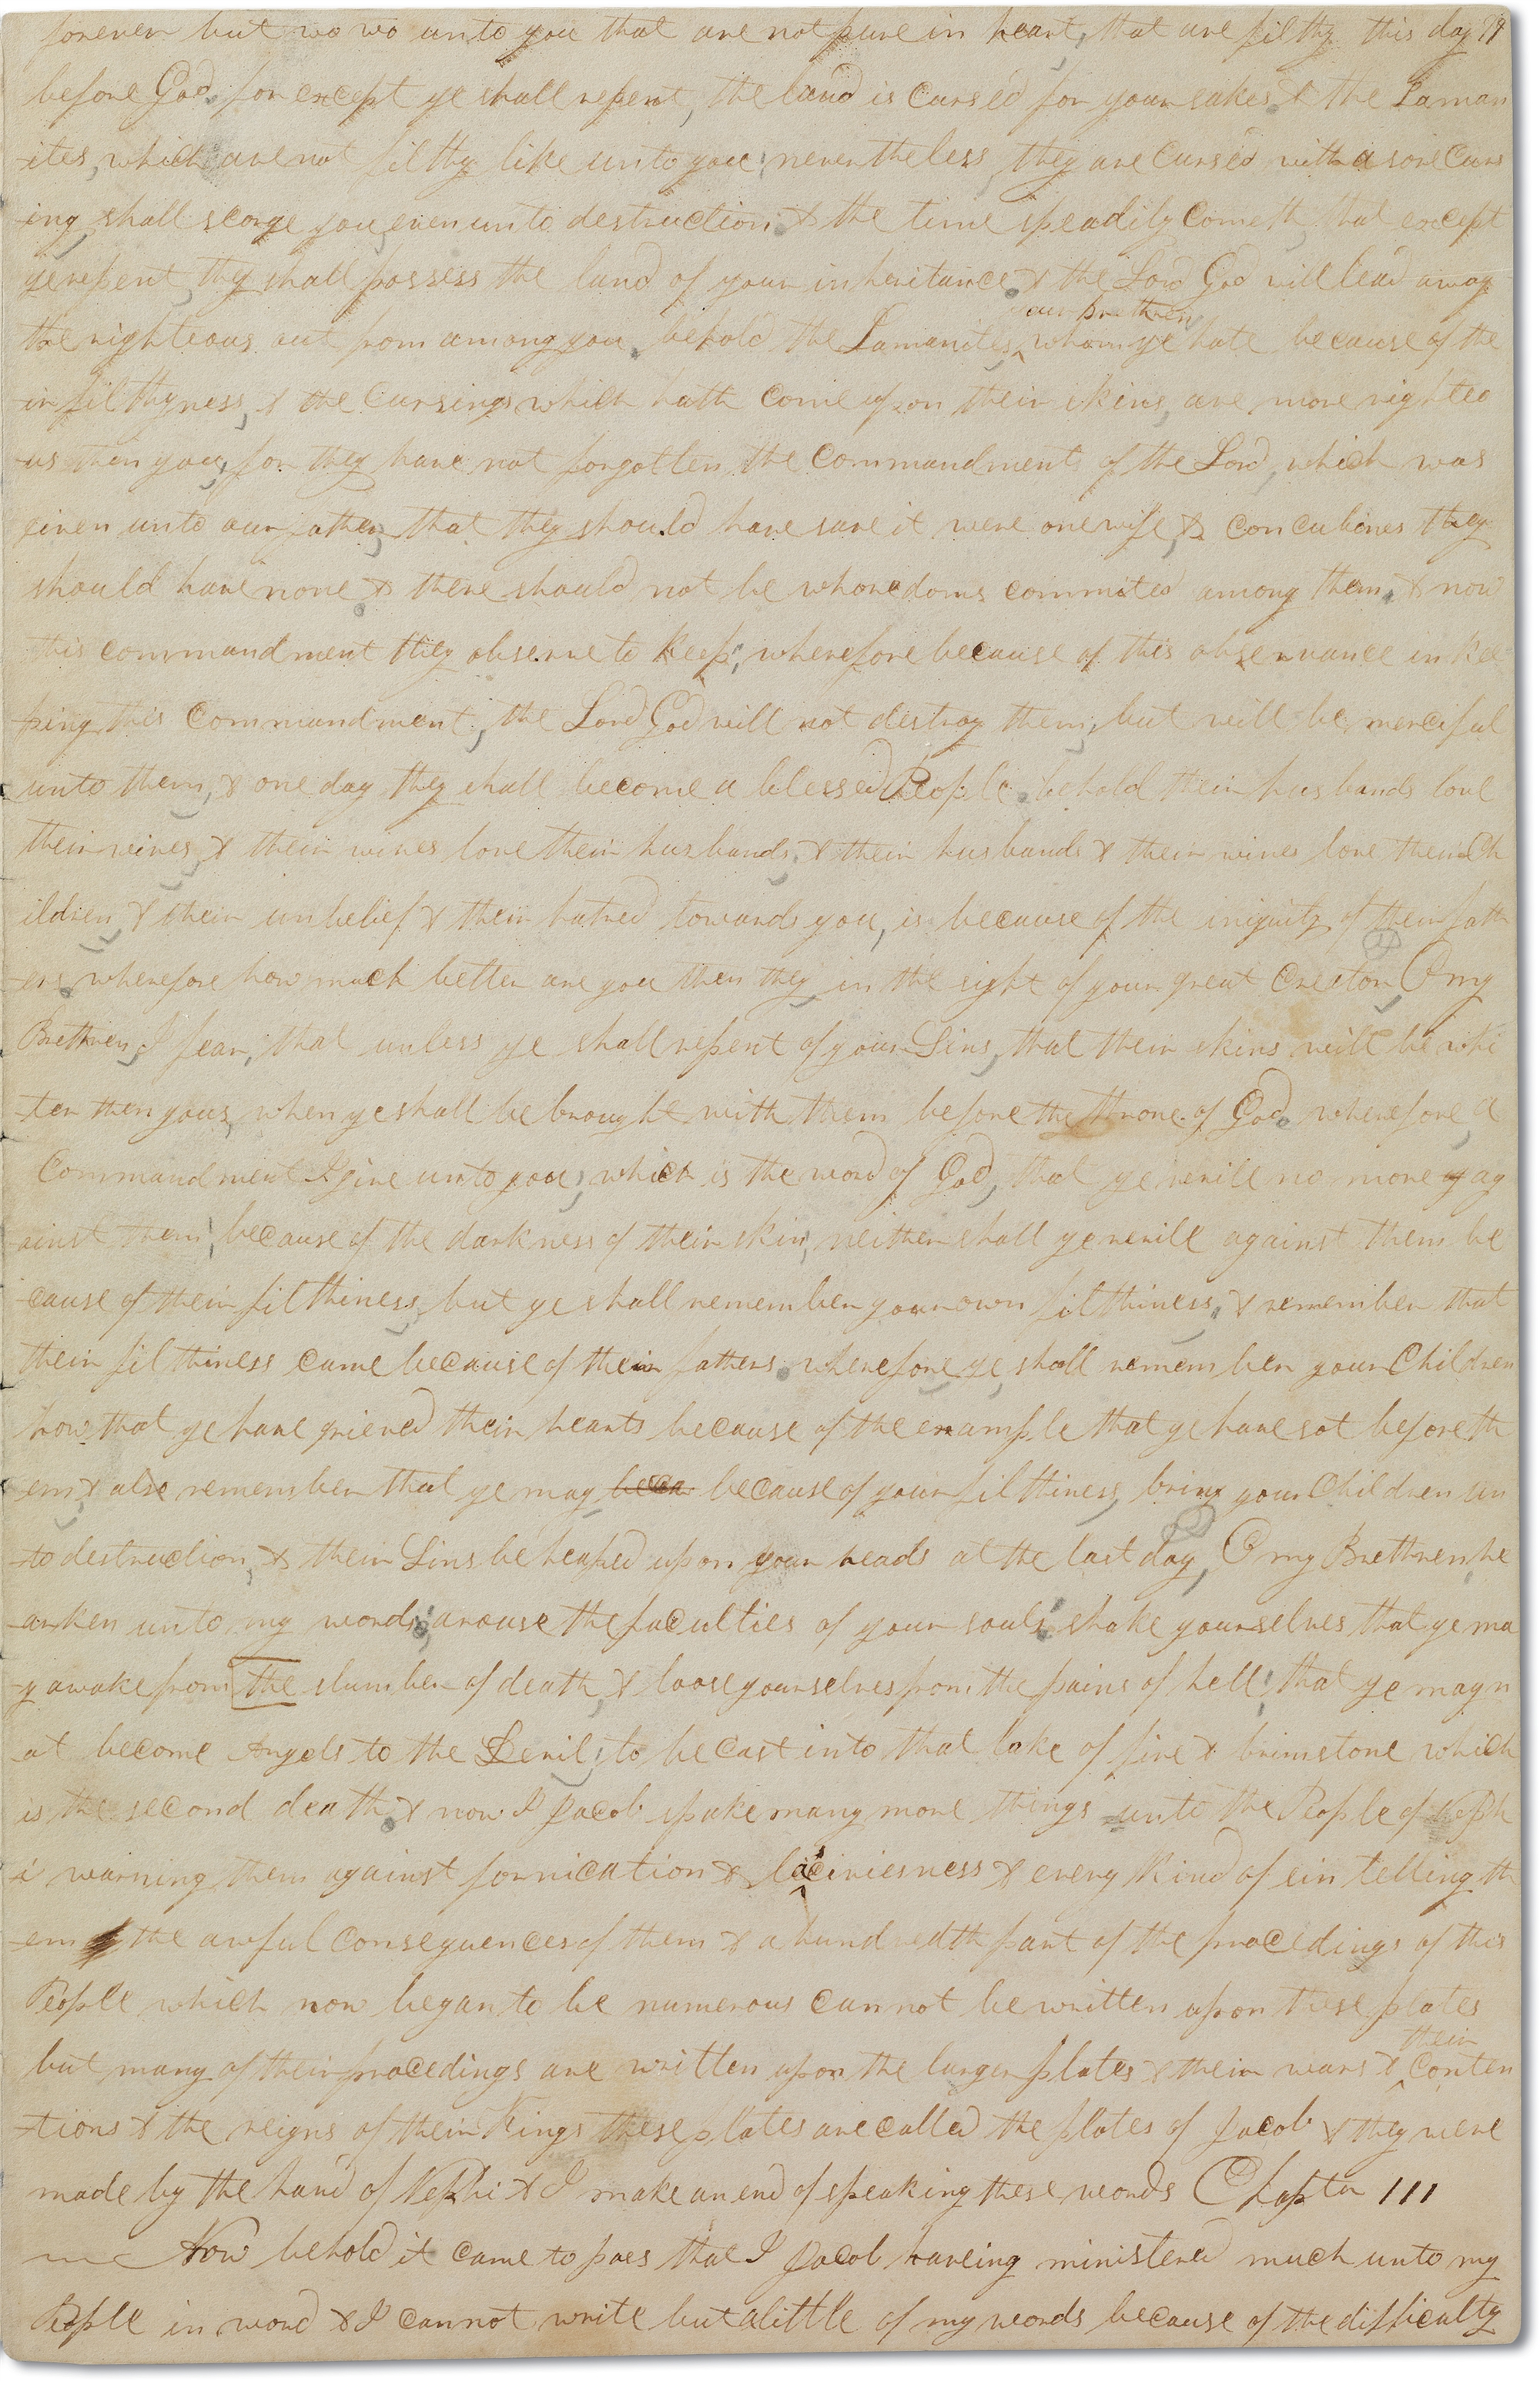 forever but wo wo unto you that are not pure in heart, that are filthy this day
before God, for except ye shall repent, the land is cursed for your sakes & the Laman
-ites, which are not filthy like unto you, nevertheless they are cursed with a sore curs
-ing shall scorge you even unto destruction, & the time speadily cometh that except
ye repent, they shall possess the land of your inheritance, & the Lord God will lead away
your brethren
the righteous out from among you, behold the Lamanites, whom ye hate because of the
-ir filthyness, & the Cursings which hath come upon their skins, are more righteo
-us then you, for they have not forgotten the commandments of the Lord, which was
given unto our fathers, that they should have save it were one wife, & concubines they
should have none, & there should not be whoredoms commited among them, & now
this commandment they observe to keep, wherefore because of this observance in kee
-ping this commandment, the Lord God will not destroy them, but will be merciful
unto them, & one day they shall become a blessed People, behold their husbands love
their wives, & their wives love their husbands, & their husbands & their wives love their Ch
ildren, & their unbelief & their hatred towards you, is because of the iniquity of their fath
-ers, wherefore how much better are you then they in the sight of your great Creator, O my
Brethren, I fear, that unless ye shall repent of your Sins, that their skins will be whi
-ter then yours, when ye shall be brought with them before the throne of God, wherefore, a
Commandment I give unto you, which is the word of God, that ye revile no more ag
-ainst them, because of the darkness of their skin, neither shall ye revile against them be
cause of their filthiness, but ye shall remember your own filthiness, & remember that
their filthiness came because of their fathers, wherefore ye shall remember your Children
how that ye have grieved their hearts because of the example that ye have sot before th
-em, & also remember that ye may because of your filthiness, bring your Children un
-to destruction, & their Sins be heaped upon your heads at the last day, O my Brethren, he
-arken unto my words, arouse the faculties of your souls, shake yourselves that ye ma
-y awake from the slumber of death, & loose yourselves from the pains of hell, that ye may n
-ot become Angels to the Devil, to be cast into that lake of fire & brimstone which
is the second death, & now I Jacob spake many more things unto the People of Neph
-i warning them against fornication & lasciviesness & every kind of sin telling th
-em the awful consequences of them & a hundredth part of the procedings of this
People which now began to be numerous cannot be written upon these plates
their
but many of their procedings are written upon the larger plates & their wars & conten
-tions & the reigns of their Kings these plates are called the plates of Jacob & they were
made by the hand of Nephi & I make an end of speaking these words Chapter III
Now behold it came to pass that I Jacob haveing ministered much unto my
People in word & I cannot write but a little of my words because of the difficulty